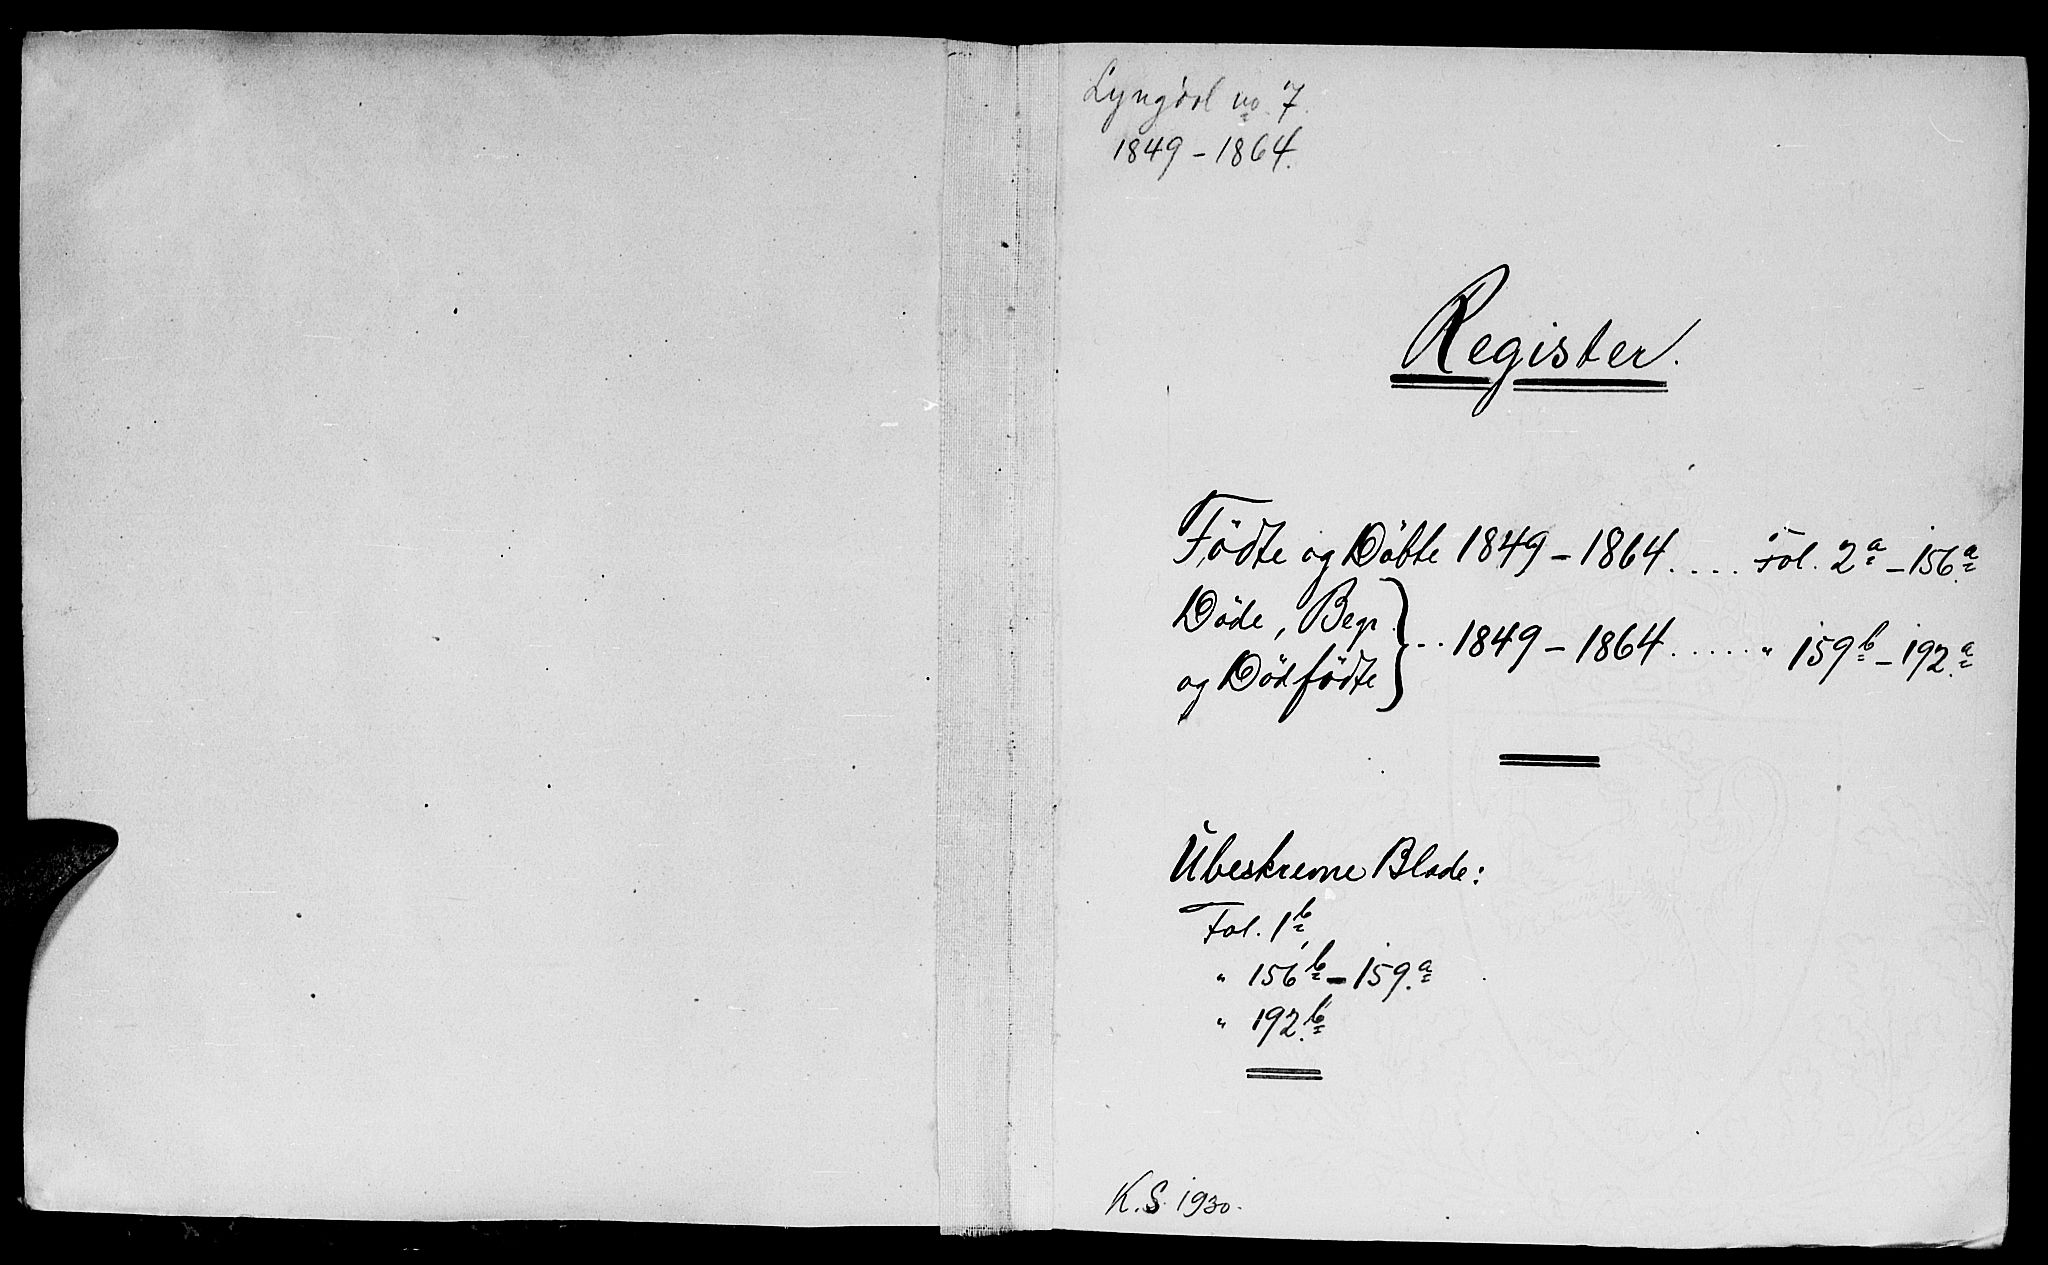 Lyngdal no. 7.
1849 – 1864.
Register.
Födte og Döbte 1849 – 1864 .... Fol. 2a – 156a
Döde, Begr. og Dödfödte } .. 1849 – 1864 ..... " 159b – 192a
Ubeskrevne Blade:
Fol. 1b
" 156b – 159a
" 192b
K. S. 1930.